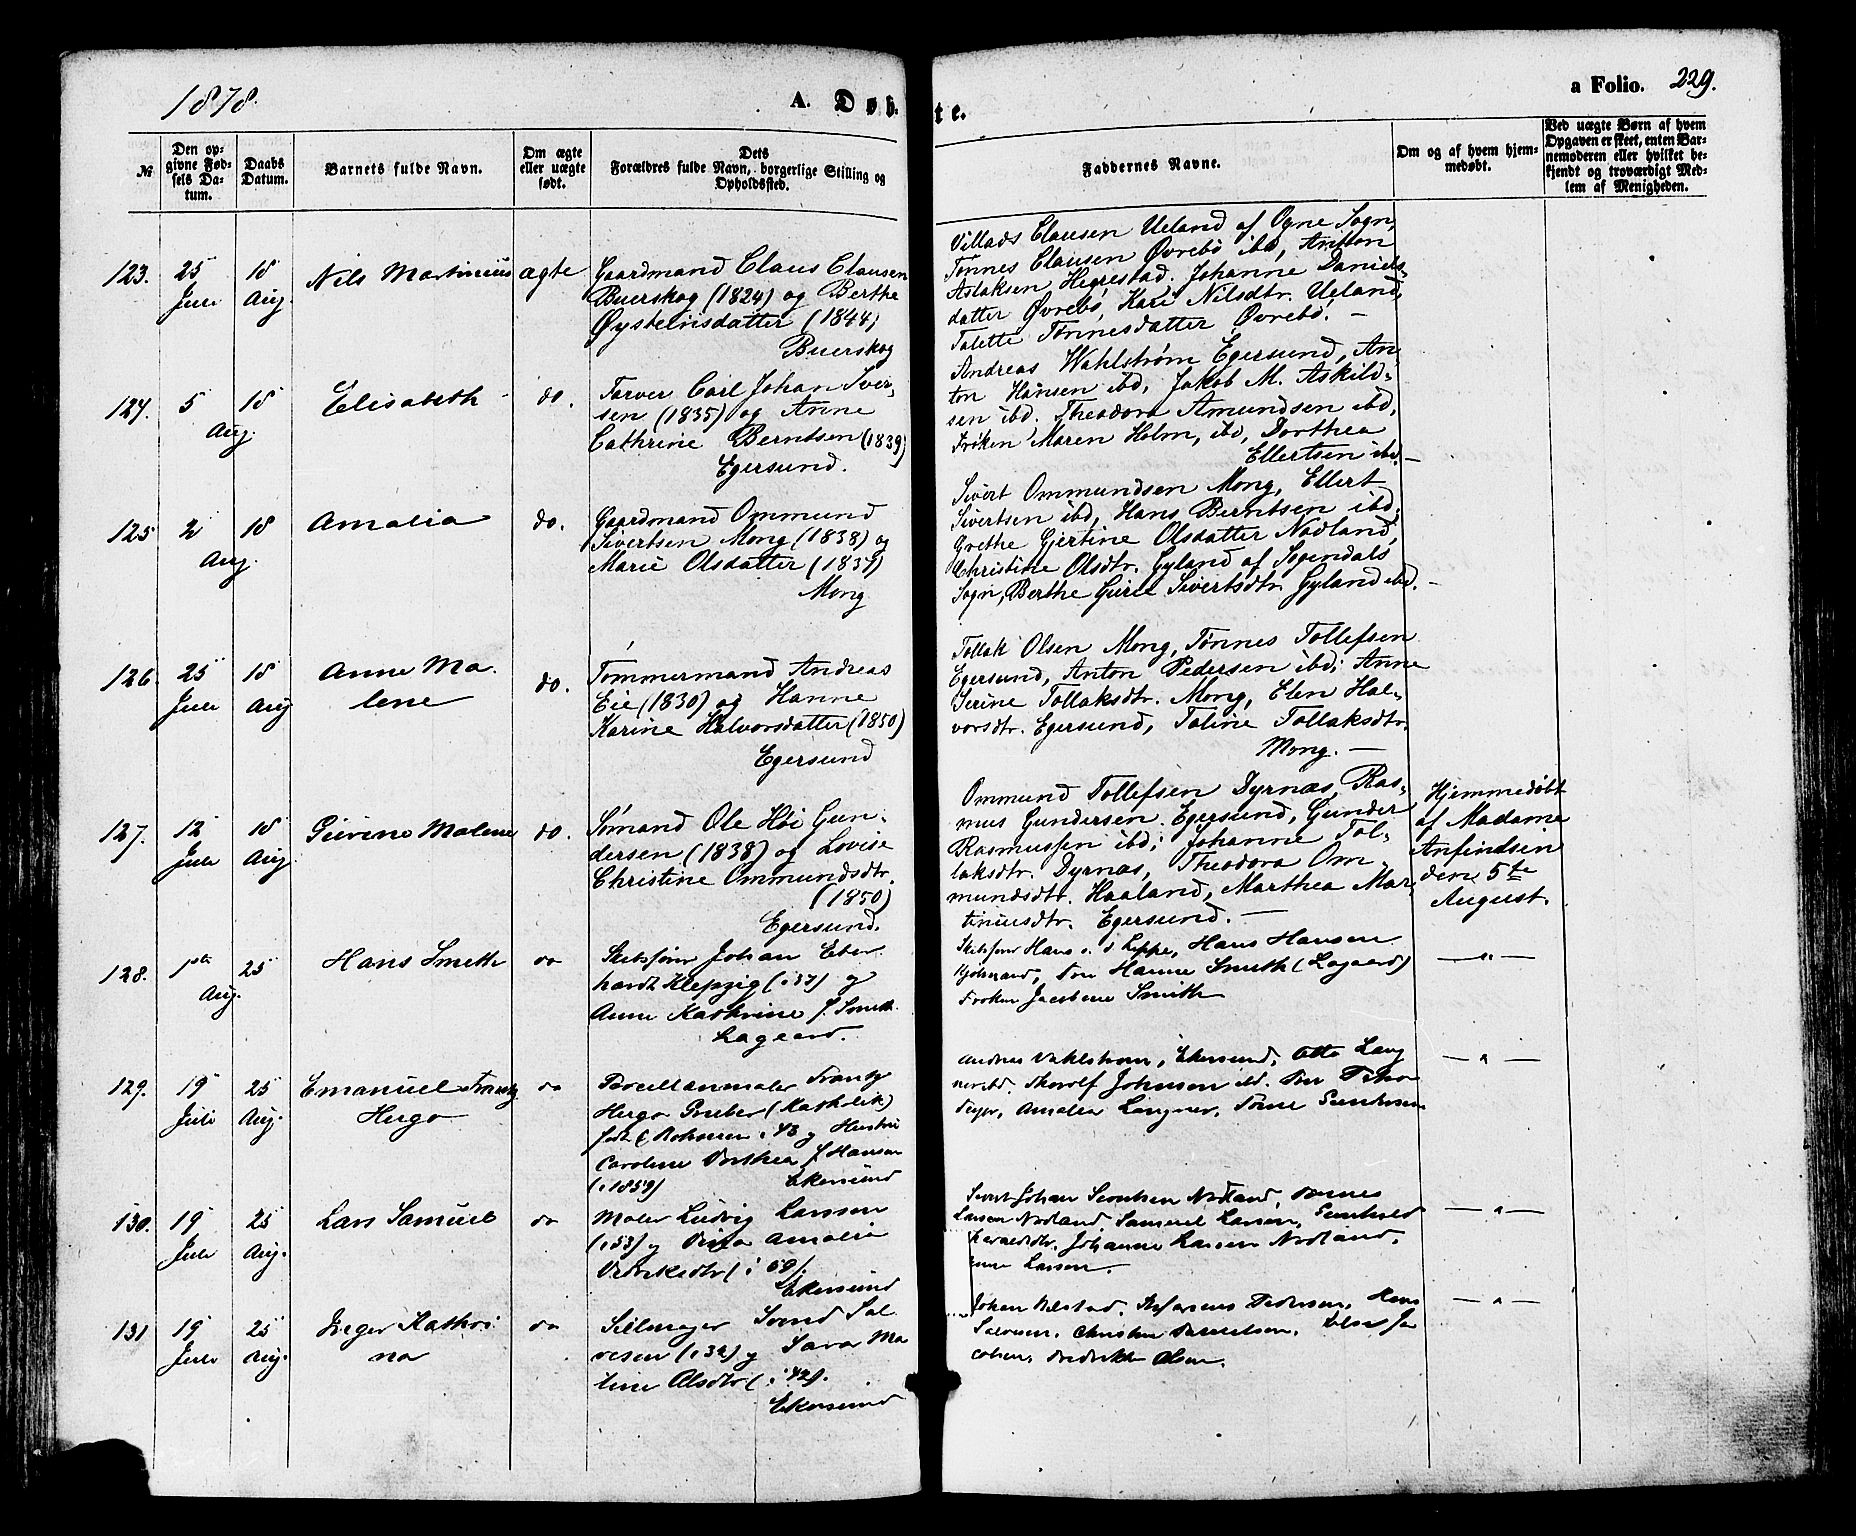 1878.
A. Døbte.
a Folio. 229.
№
Den op-
givne Fød-
sels Da-
tum.
Daabs
Datum.
Barnets fulde Navn.
Om ægte
eller uægte
født.
Dets
Forældres fulde Navn, borgerlige Stilling og
Opholdssted.
Faddernes Navne.
Om og af hvem hjem-
medøbt.
Ved uægte Børn af hvem
Opgaven er skeet, enten Bar-
nemoderen eller hvilket be-
kjendt og troværdigt Med-
lem af Menigheden.
123. 25 Juli
18 Aug.
Nils Martinius
ægte
Gaardmand Claus Clausen
Buerskog (1824) og Berthe
Øysteinsdatter (1844)
Buerskog
Villads Clausen Ueland af Ogne Sogn,
Tønnes Clausen Øvrebø ibd, Anton
Aslaksen Hegrestad. Johanne Daniels-
datter Øvrebø, Kari Nilsdtr. Ueland,
Talette Tønnesdatter Øvrebø. —
124. 5 Aug.
18
Elisabeth
do.
Farver Carl Johan Iver-
sen (1835) og Anne
Cathrine Berntsen (1839)
Egersund.
Andreas Wahlstrøm Egersund, An-
ton Hansen ibd, Jakob M. Askild-
sen ibd. Theodora Amundsen ibd,
Frøken Maren Holm, ibd, Dorthea
Ellertsen ibd. —
125 2 Aug.
18
Amalia
do.
Gaardmand Ommund
Sivertsen Mong (1838) og
Marie Olsdatter (1837)
Mong
Sivert Ommundsen Mong, Ellert
Sivertsen ibd, Hans Berntsen ibd,
Grethe Gjertine Olsdatter Nodland,
Christine Olsdtr. Gyland af Sogendals
Sogn, Berthe Gurie Sivertsdtr. Gyland ibd. —
126. 25 Juli
18 Aug
Anne Ma-
lene
do.
Tømmermand Andreas
Eie (1830) og Hanne
Karine Halvorsdatter (1850)
Egersund
Tollak Olsen Mong, Tønnes Tollefsen
Egersund, Anton Pedersen ibd; Anne
Serine Tollaksdtr. Mong, Elen Hal-
vorsdtr. Egersund, Taline Tollaksdtr.
Mong. —
127. 12 Juli
18 Aug.
Sivrine Malene
do.
Sømand Ole Høi Gun-
dersen (1838) og Lovise
Christine Ommundsdtr.
(1850)
Egersund.
Ommund Tollefsen Dyrnæs, Ras-
mus Gundersen. Egersund, Gunder
Rasmussen ibd; Johanne Tol-
laksdtr. Dyrnæs, Theodora Om-
mundsdtr. Haaland, Marthea Mar-
tiniusdtr. Egersund. —
Hjemmedøbt
af Madame
Anfindsen
den 5te
August.
128. 1ste Aug.
25
Hans Smith
do
Skibsfører Johan Eber-
hardt Klepzig (37) og
Anne Kathrine f. Smith
Lagaard.
Skibsfører Hans Hansen
Fru Hanne Smith (Lagaard)
Frøken Jacobine Smith
— " —
129. 15 Juli
25 Aug.
Emanuel Frantz
Hugo
do
Porcellanmaler Frantz
Hugo Gruber (Katholik)
født i 48 og Hustru
Caroline Dorthea f. Hansen
(1859) Ekersund
Andreas Vahlstrøm, Ekersund, Otto Lang
ner ibd. Thorolf Johnsen ibd.
Amalia Langner,
— " —
130. 19 Juli
25 Aug.
Lars Samuel
do
Maler Ludvig Larsen
(53) og Amalia
Ekersund
Johan Nodland,
Larsen Nodland, Samuel Larsen,
Johanne Larsen Nodland,
Larsen.
— " —
131 19 Juli
25 Aug.
Inger Kathri-
na
do
Svend Sal
vesen (39) og Sara Ma
line Olsdtr (42).
Ekersund
Johan Pedersen, Hans
Salvesen. Christen
Fredrikke Olsen.
— " —